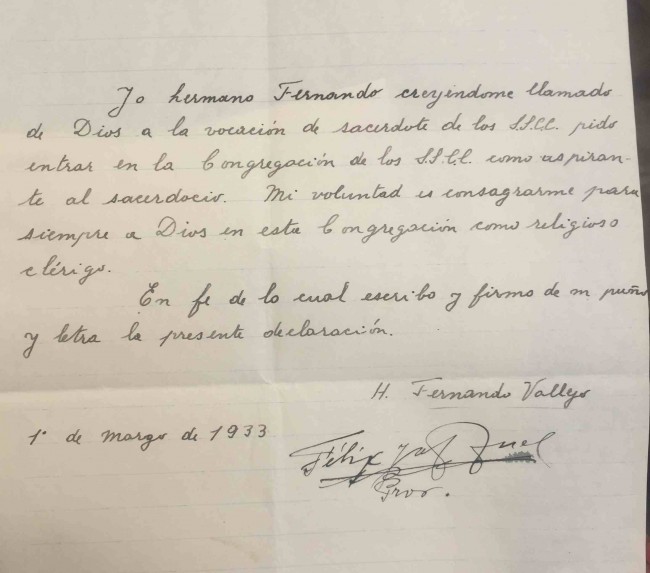 Yo hermano Fernando creyéndome llamado
de Dios a la vocación de sacerdote de los SS.CC. pido
entrar en la Congregación de los SS.CC. como aspiran-
te al sacerdocio. Mi voluntad es consagrarme para
siempre a Dios en esta Congregación como religioso
clérigo.
En fe de lo cual escribo y firmo de m puño
y letra la presente declaración.
H. Fernando Vallejo
1º de marzo de 1933
Félix
Prov.